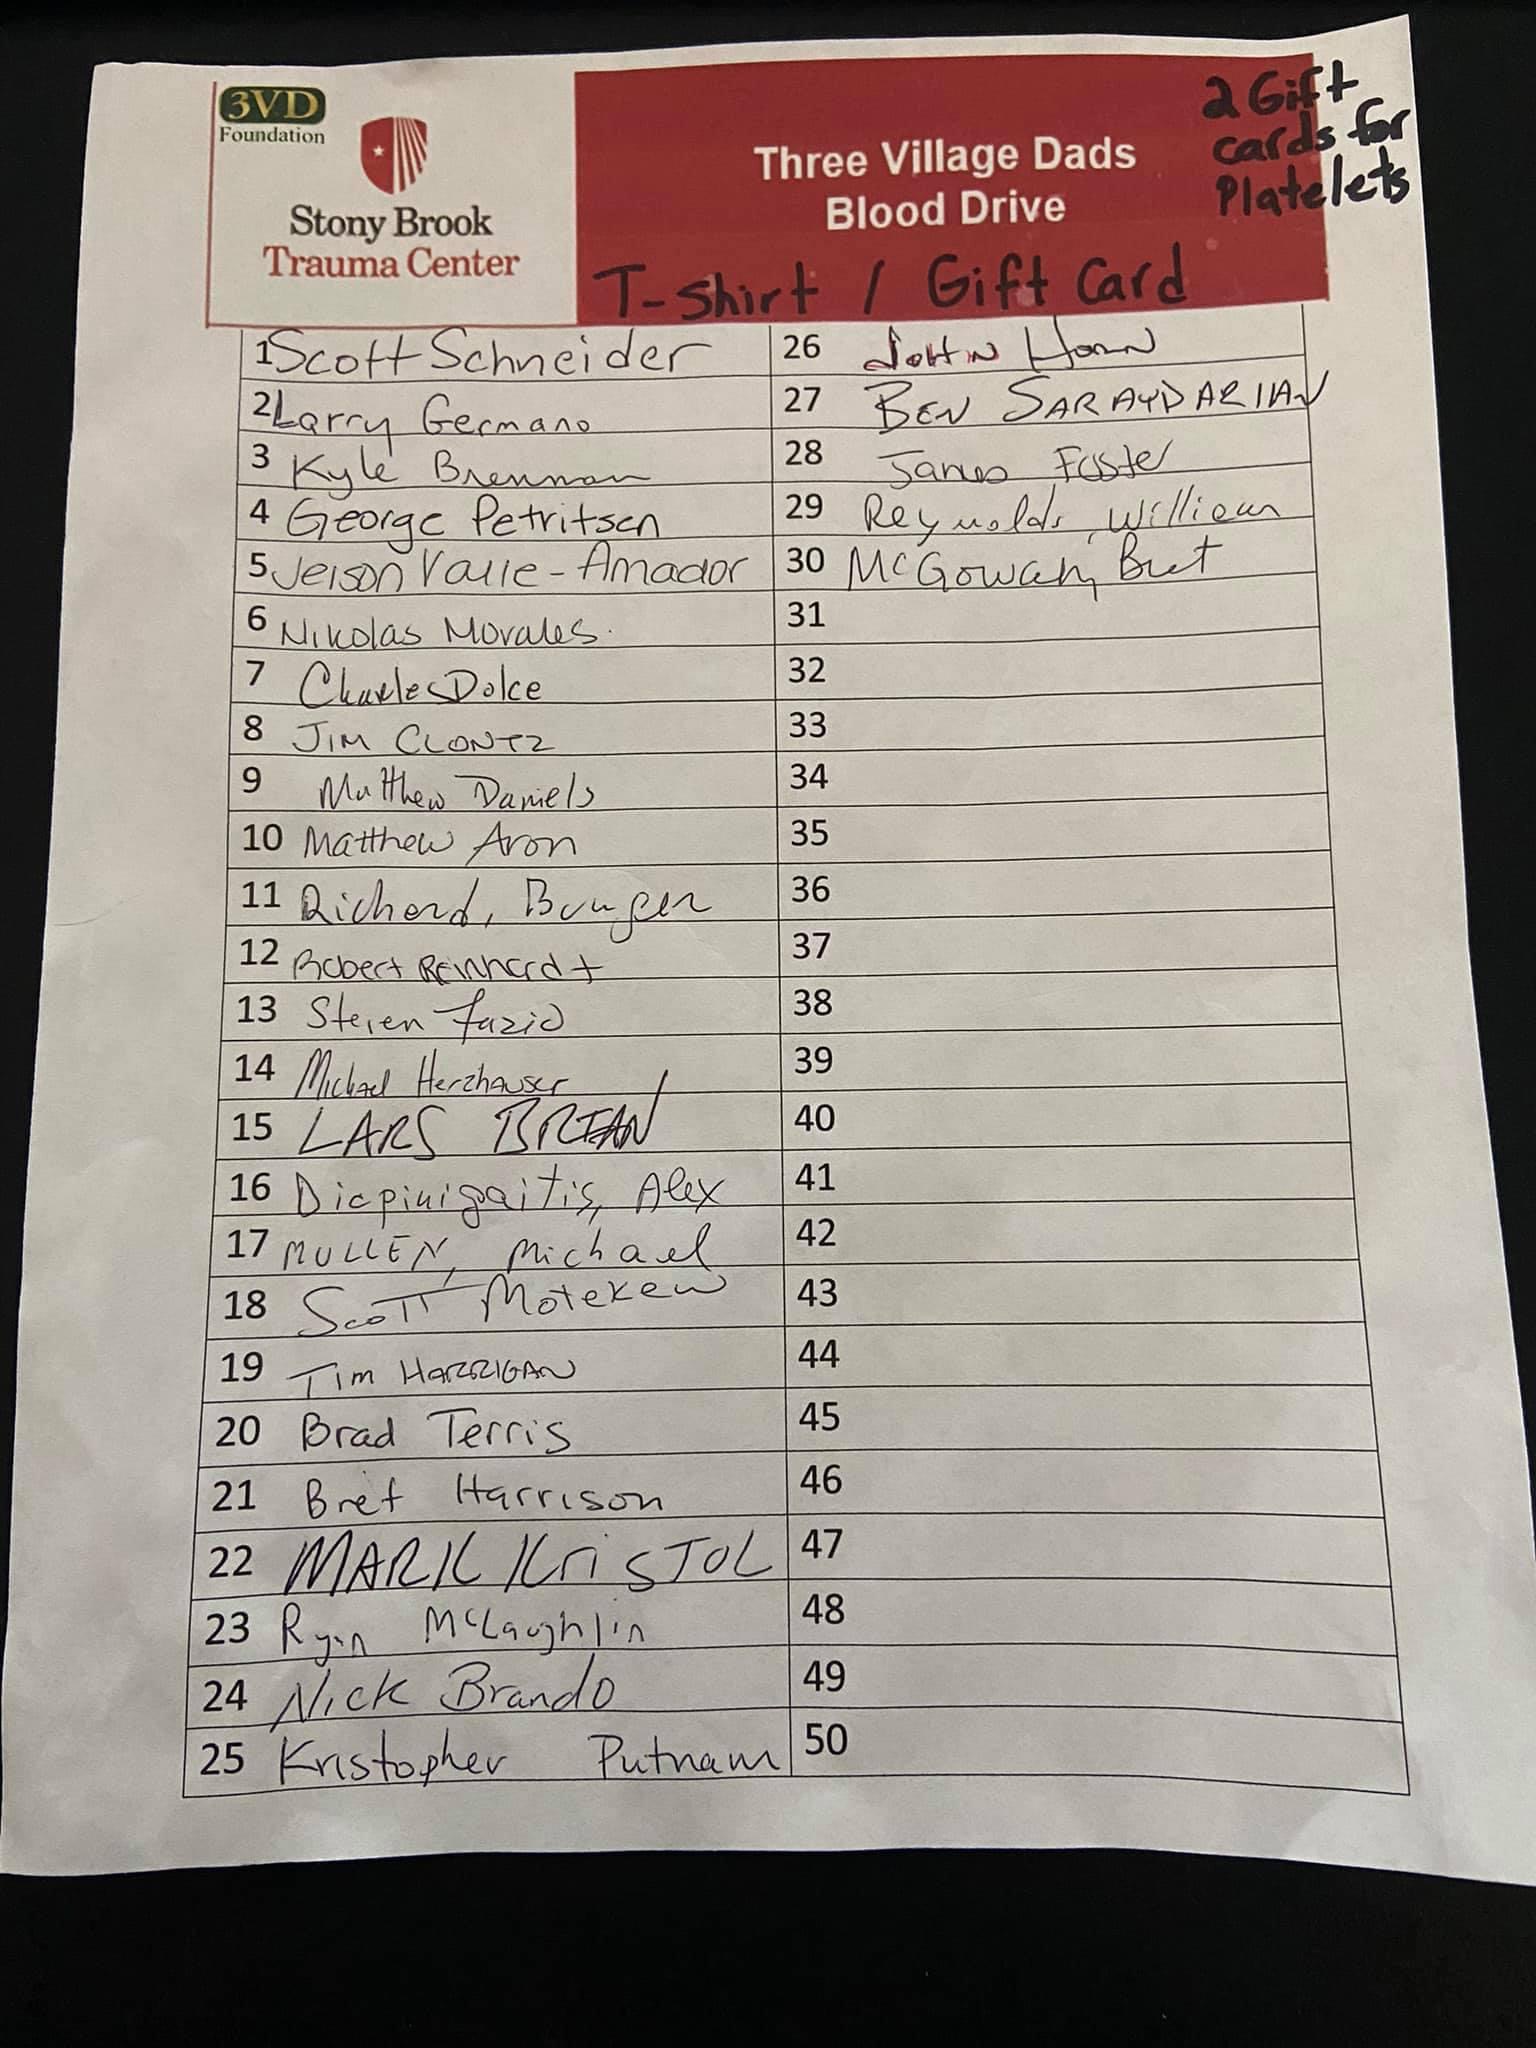 3VD
Foundation
Stony Brook
Trauma Center
Three Village Dads
Blood Drive
2 Gift
cards for
Platelets
T-Shirt / Gift Card
1 Scott Schneider
2 Larry Germano
3 Kyle Brennan
4 George Petritsen
5 Jeison Valle-Amador
6 Nikolas Morales
7 Charles Dolce
8 Jim Clontz
9 Matthew Daniels
10 Matthew Aron
11 Richard, Bunger
12 Robert Reinhardt
13 Steven Fazio
14 Michael Herzhauser
15 LARS BRIAN
16 Dicpinigaitis, Alex
17 MULLEN, Michael
18 Scott Motekew
19 Tim HARRIGAN
20 Brad Terris
21 Bret Harrison
22 MARK KrisTOL
23 Ryan McLaughlin
24 Nick Brando
25 Kristopher Putnam
26
27 BEN SARAYDARIAN
28 James Foster
29 Reynolds, William
30 McGowan, Bret
31
32
33
34
35
36
37
38
39
40
41
42
43
44
45
46
47
48
49
50